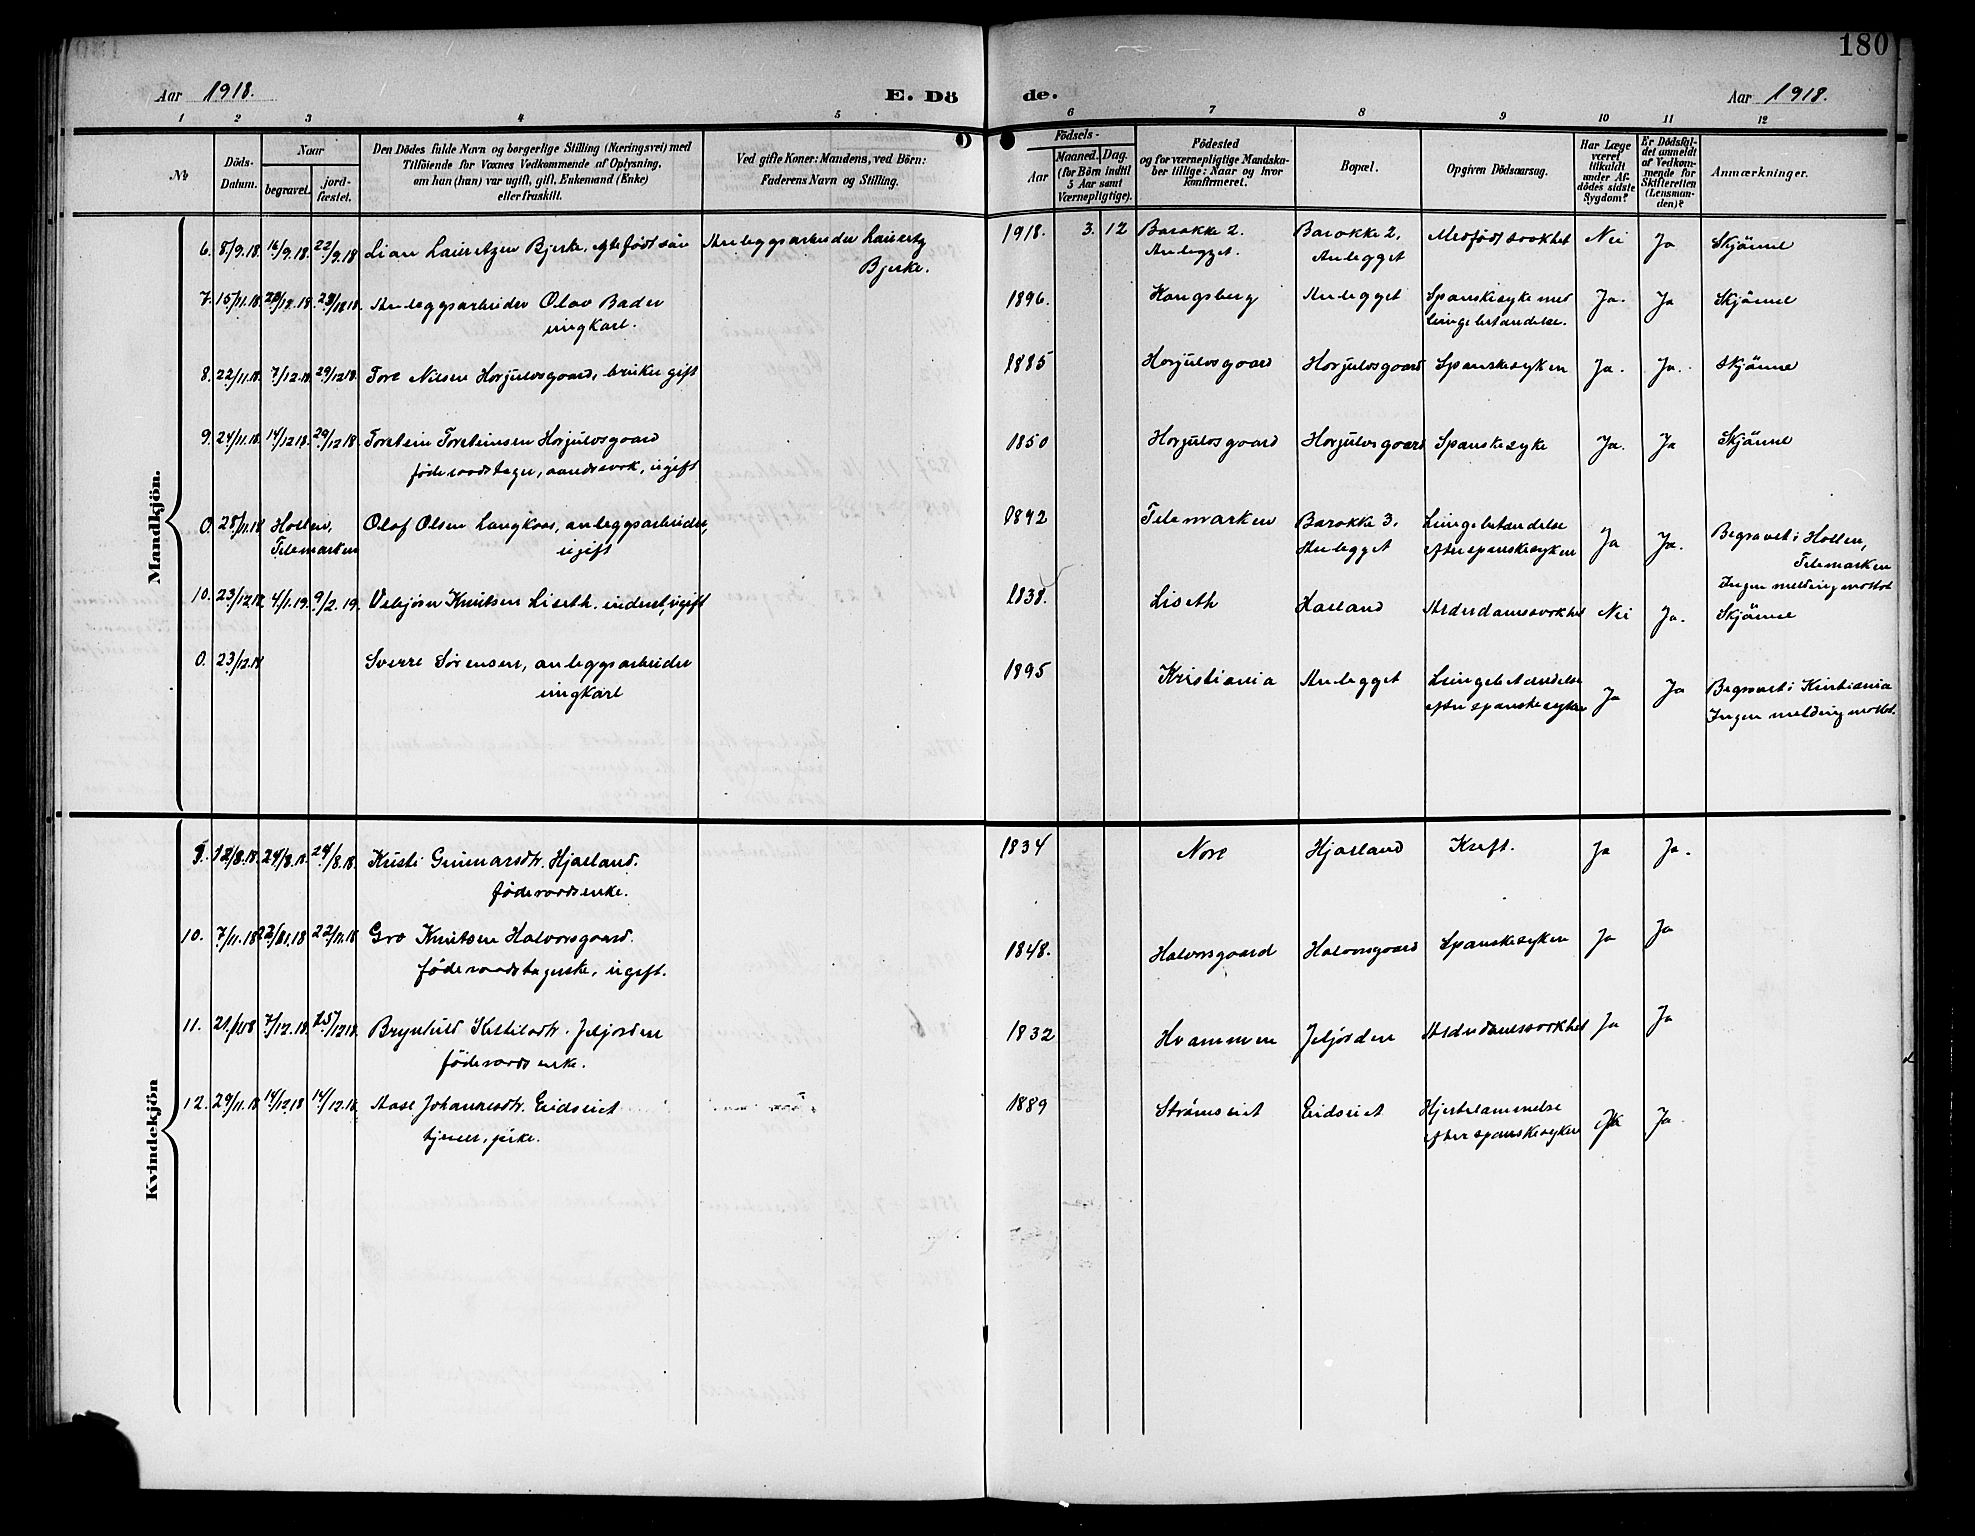 180
Aar 1918.
E. Dö
de.
Aar 1918.
1 2 3 4 5 6 7 8 9 10 11 12
No
Döds-
Datum.
Naar
begravet.
jord-
fæstet.
Den Dödes fulde Navn og borgerlige Stilling (Næringsvei) med
Tilföiende for Voxnes Vedkommende af Oplysning,
om han (hun) var ugift, gift, Enkemand (Enke)
eller fraskilt.
Ved gifte Koner: Mandens, ved Börn:
Faderens Navn og Stilling.
Födsels-
Aar
Maaned.
Dag.
(for Börn indtil
5 Aar samt
Værnepligtige).
Födested
og for værnepligtige Mandska-
ber tillige: Naar og hvor
konfirmeret.
Bopæl.
Opgiven Dödsaarsag.
Har Læge
været
tilkaldt
under Af-
dödes sidste
Sygdom?
Er Dödsfal-
det anmeldt
af Vedkom-
mende for
Skifteretten
(Lensman-
den)?
Anmærkninger.
Mandkjön.
6. 8/9.18. 16/9.18. 22/9.18 Lian Lauritzen Bjerke, egtefødt søn Anleggsarbeider Lauritz
Bjerke.
1918. 3. 12 Barakke 2. Barakke 2, Medfødt svakhet Nei Ja Skjönne
Anlegget. Anlegget
7. 15/11.18. Anleggsarbeider Olav Bader
ungkarl.
1896. Kongsberg Anlegget Spanskesyke med Ja. Ja Skjönne
lungebetændelse.
8. 22/11.18. 7/12.18. 29/12 18. Tore Nilsen Horjulvsgaard, bruker gift
1885 Horjulvsgaard Horjulvsgaard Spanskesyken Ja. Ja. Skjönne
9. 24/11.18. 14/12 18. 29/12 18. Torstein Torsteinsen Horjulvsgaard
føderaadstager, aandssvak, ugift
1850 Horjulvsgaard Horjulvsgaard Spanskesyke Ja. Ja Skjönne
0. 28/11.18 Hollen, Olaf Olsen Langkaas, anleggsarbeider,
Telemarken ugift
1892 Telemarken Barakke 3. Lungebetændelse Ja Ja. Begravet i Hollen,
Anlegget efter spanskesyken Telemarken
Ingen melding mottat
10. 23/12.18. 4/1.19. 9/2.19. Vebjørn Knutsen Liseth. inderst, ugift
1838. Liseth Haaland Alderdomssvakhet Nei Ja. Skjönne
0. 23/12.18 Sverre Sørensen, anleggsarbeider
ungkarl
1895 Kristiania Anlegget Lungebetændelse Ja Ja Begravet i Kristiania
efter spanskesyken Ingen melding mottat.
Kvindekjön
9. 12/8.18. 24/8.18 24/8.18. Kristi Gunnarsdtr. Hjaaland.
føderaadsenke.
1834 Nore Hjaaland Kræft. Ja Ja.
10. 7/11.18 22/11.18 Gro Knutsen Halvorsgaard.
føderaadstagerske, ugift.
1848. Halvorsgaard Halvorsgaard Spanskesyken Ja Ja
11. 7/12.18 Brynhild Ketilsdtr. Jeljorden
føderaads enke.
1832 Hvammen Jeljorden Alderdomssvakhet Ja Ja
12. 29/11.18 14/12 18 14/12.18 Aase Johannesdtr. Eidseiet
tjener, pike.
1889 Strømseiet Eidseiet Hjertelammelse Ja Ja
efter spanskesyken